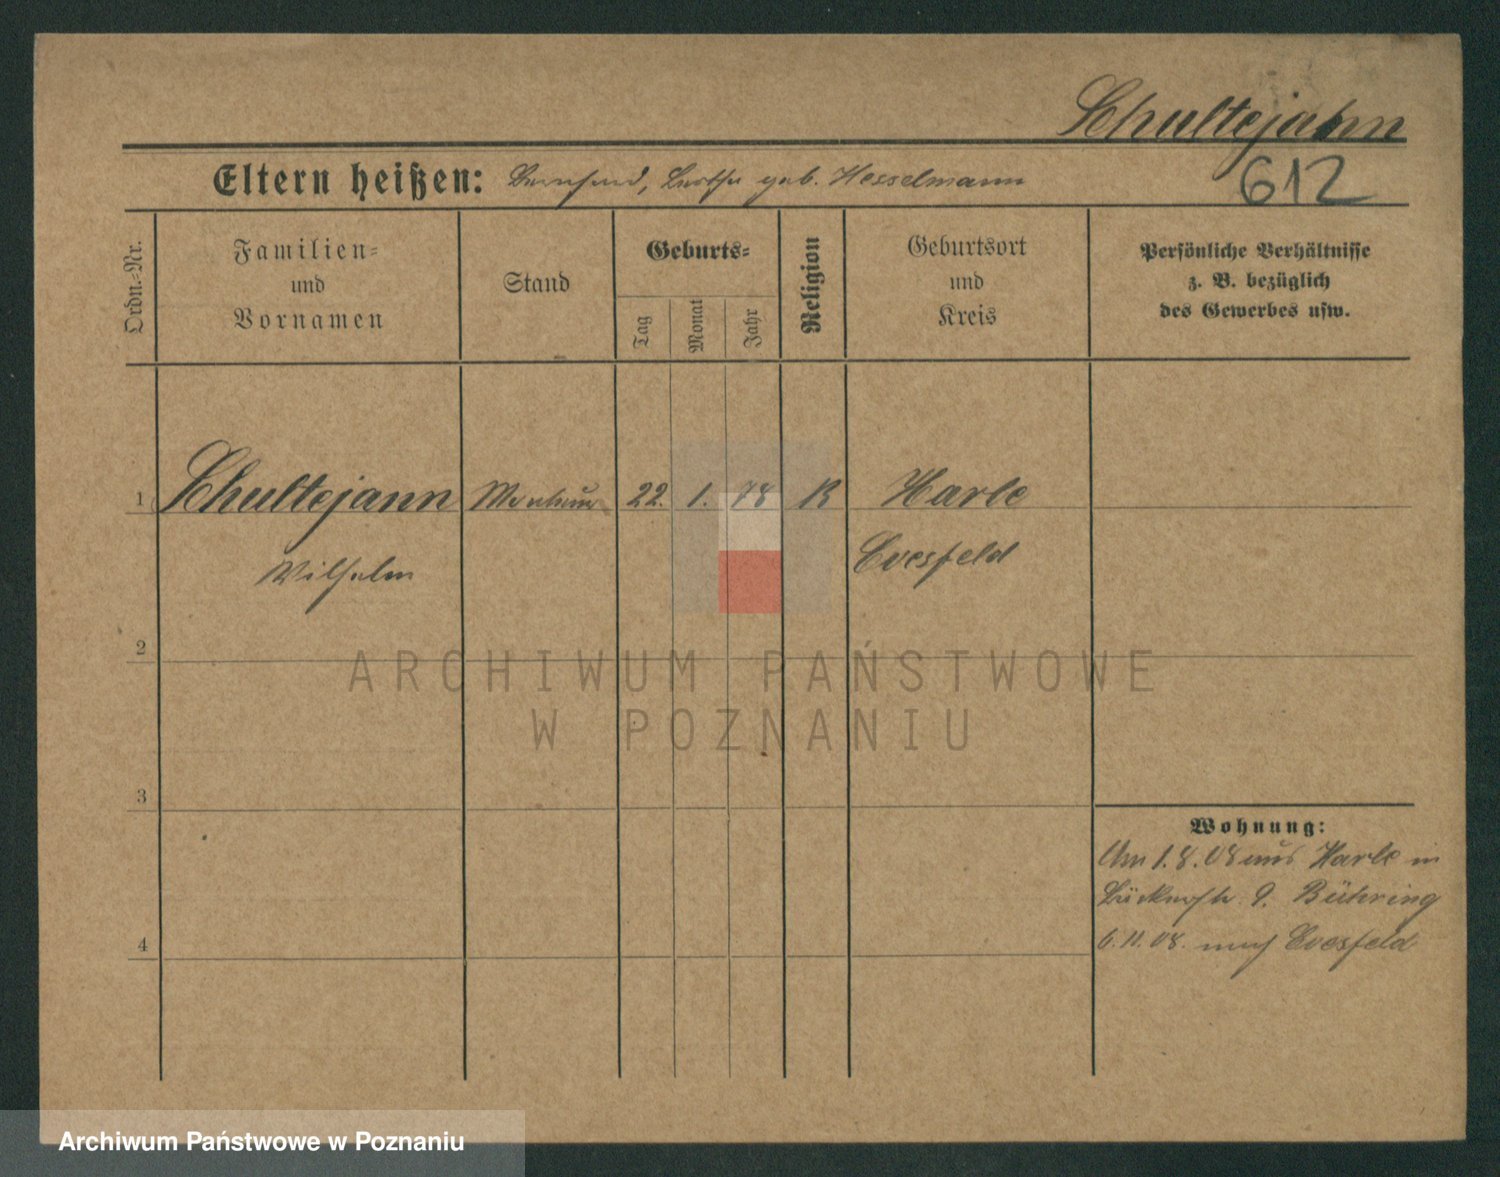 Schultejann
612
Eltern heißen: Bernhard, Bertha geb. Hesselmann
Ordn.-Nr.
Familien-
und
Vornamen
Stand
Geburts-
Tag
Monat
Jahr
Religion
Geburtsort
und
Kreis
Persönliche Verhältnisse
z. B. bezüglich
des Gewerbes usw.
1 Schultejann Monteur 22. 1. 78 K Harle
Wilhelm Coesfeld
2
ARCHIWUM PAŃSTWOWE
W POZNANIU
3
Wohnung:
Am 1.8.08 aus Harle in
9. Bühring
4
6.11.08. nach Coesfeld
Archiwum Państwowe w Poznaniu